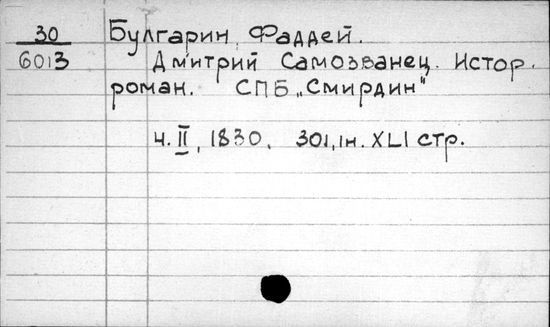 30 Булгарин, Фаддей.
6013 Дмитрий Самозванец. Истор.
роман. СПБ „Смирдин"
ч. II, 1830. 301, 1н. XLI стр.